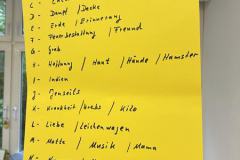 C -
D - Dampf / Decke
E - Erde / Erinnerung
F - Feuerbestattung / Freund
G - Grab
H - Hoffnung / Haut / Hände / Hamster
I - Indien
J - Jenseits
K - Krankheit / Krebs / Kilo
L - Liebe / Leichenwagen
M - Motte / Musik / Mama